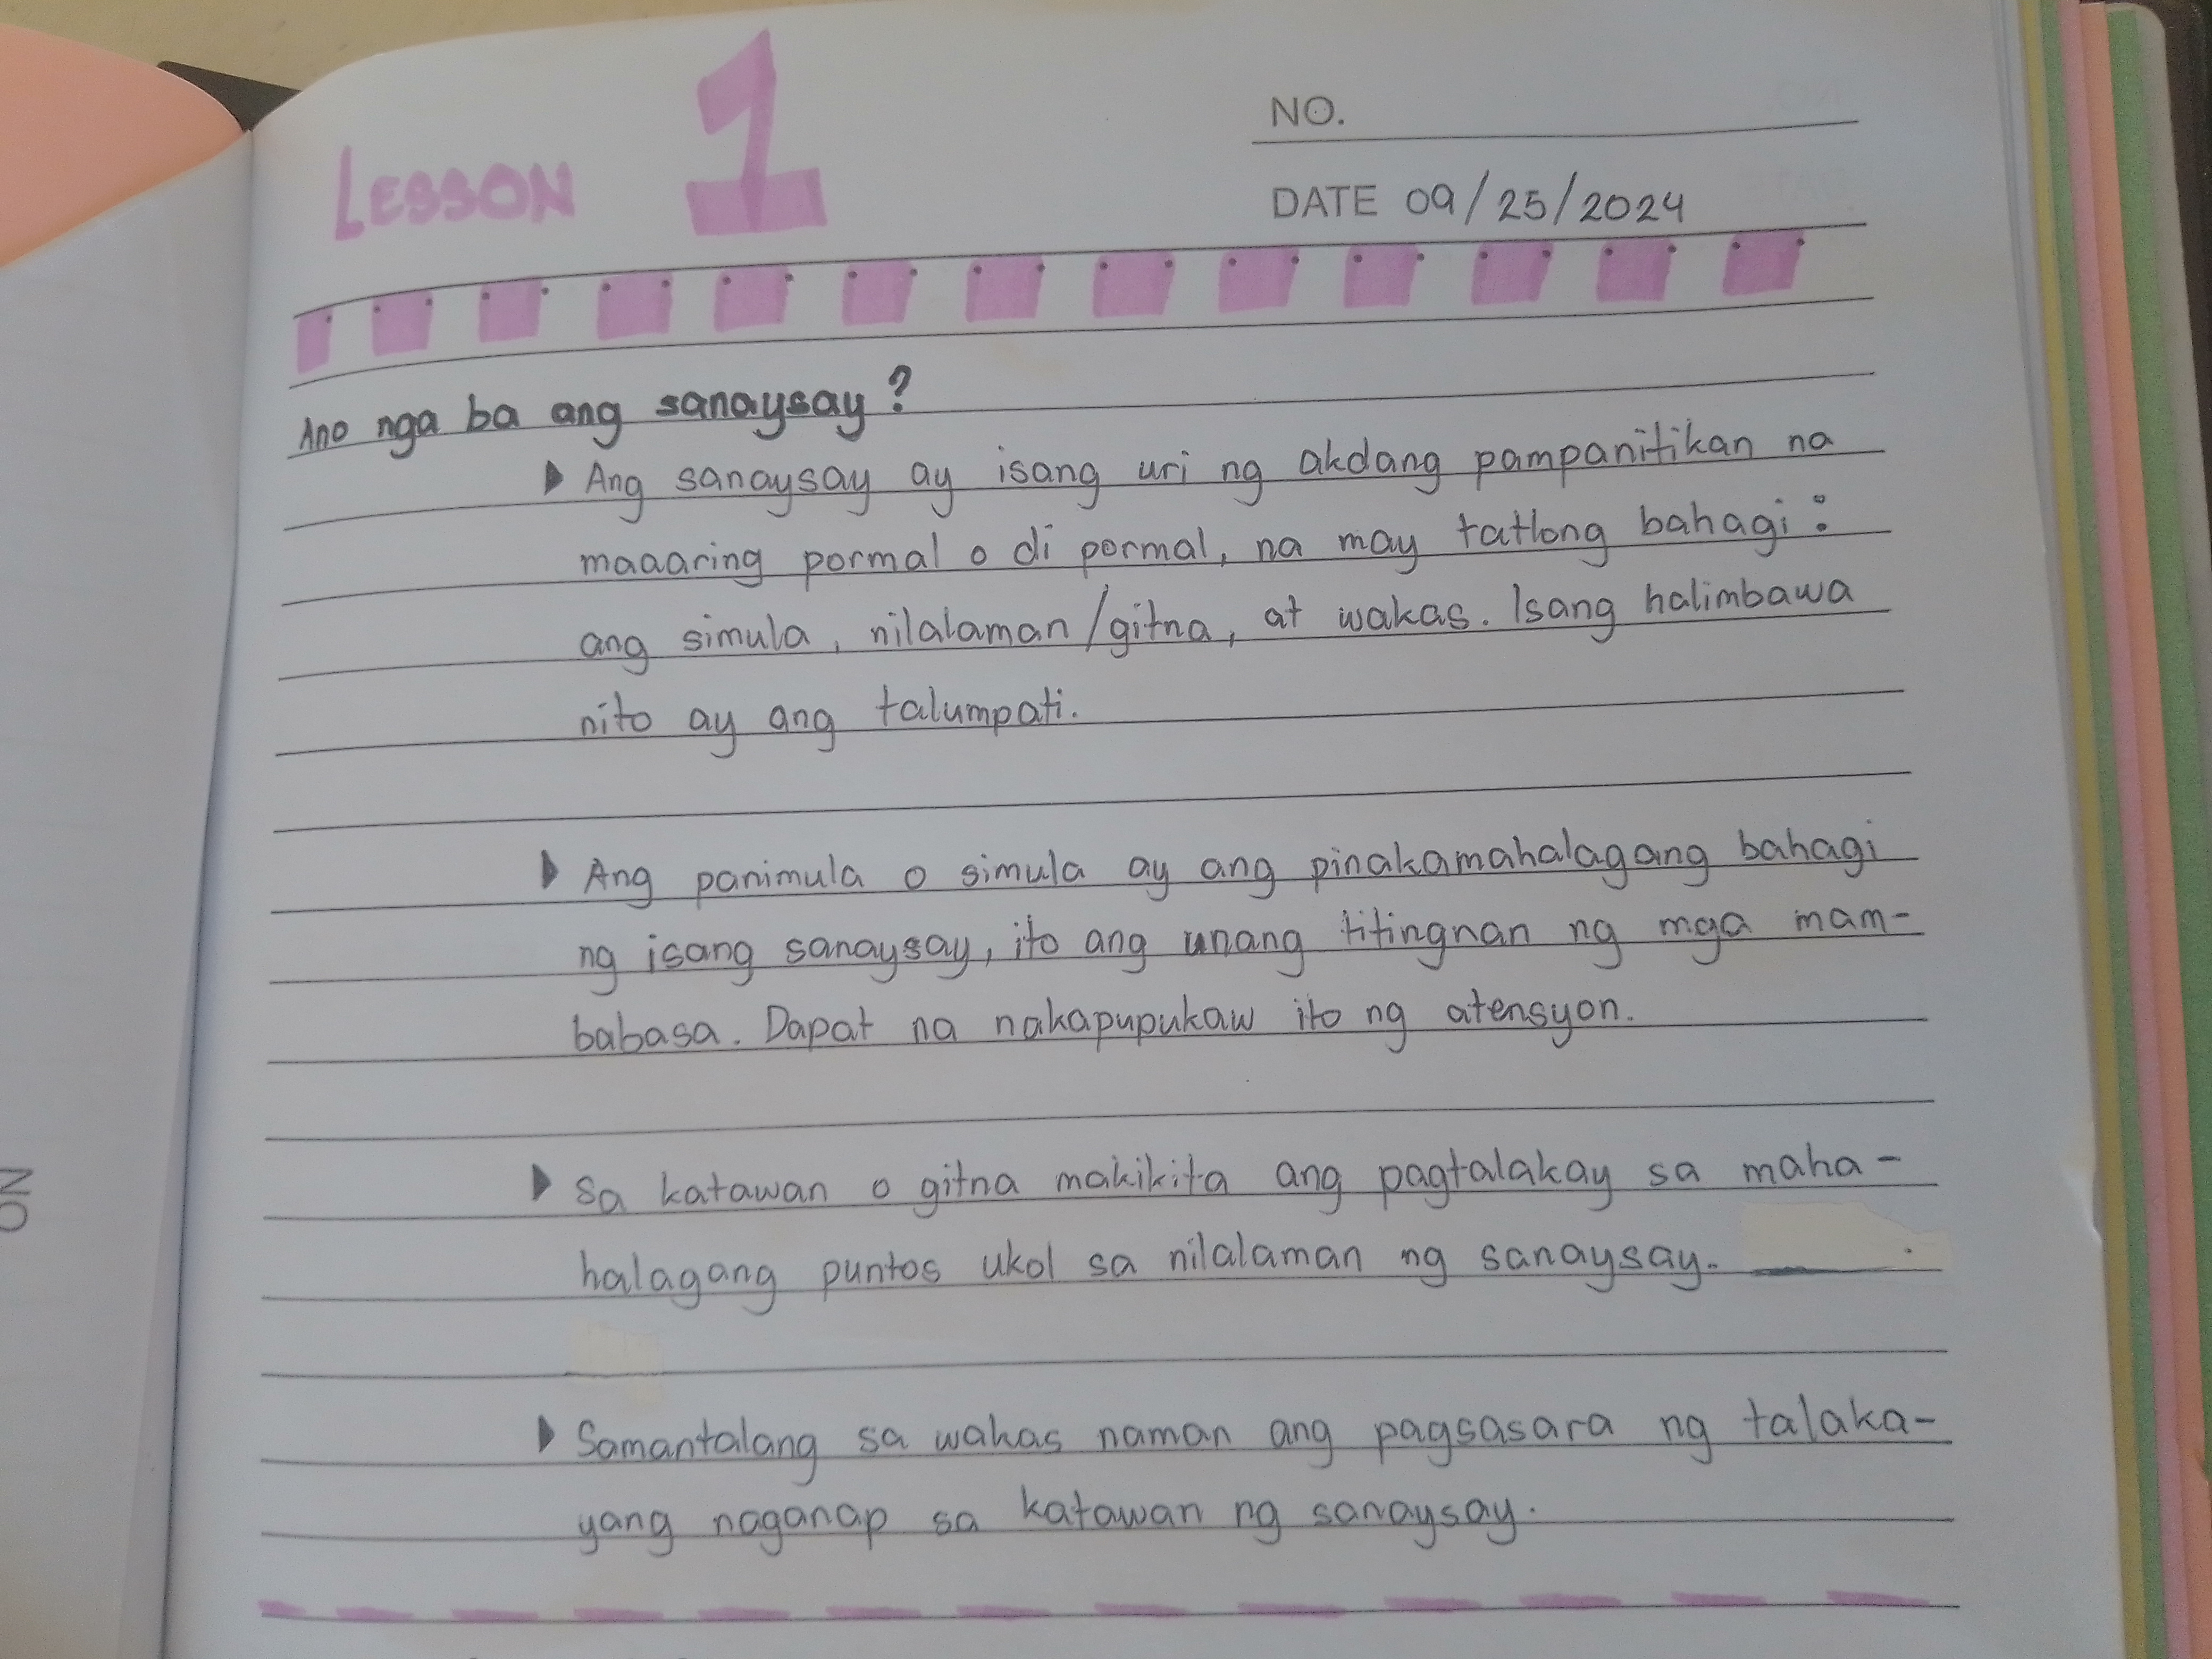 LESSON 1
NO.
DATE 09/25/2024
Ano nga ba ang sanaysay?
Ang sanaysay ay isang uri ng akdang pampanitikan na
maaaring pormal o di pormal, na may tatlong bahagi:
ang simula, nilalaman/gitna, at wakas. Isang halimbawa
nito ay ang talumpati.
Ang panimula o simula ay ang pinakamahalagang bahagi
ng isang sanaysay, ito ang unang titingnan ng mga mam-
babasa. Dapat na nakapupukaw ito ng atensyon.
Sa katawan o gitna makikita ang pagtalakay sa maha-
halagang puntos ukol sa nilalaman ng sanaysay.
Samantalang sa wakas naman ang pagsasara ng talaka-
yang naganap sa katawan ng sanaysay.
NO